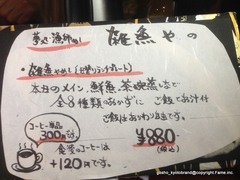 雄魚やの
・雄魚やめし(日替りランチプレート)
本日のメイン、鮮魚、茶碗蒸しなど
全8種類のおかずに ご飯とお汁付
ご飯はおかわり出来ます。
コーヒー単品
300円
¥880-
(税込)
食後のコーヒーは
+120円です。